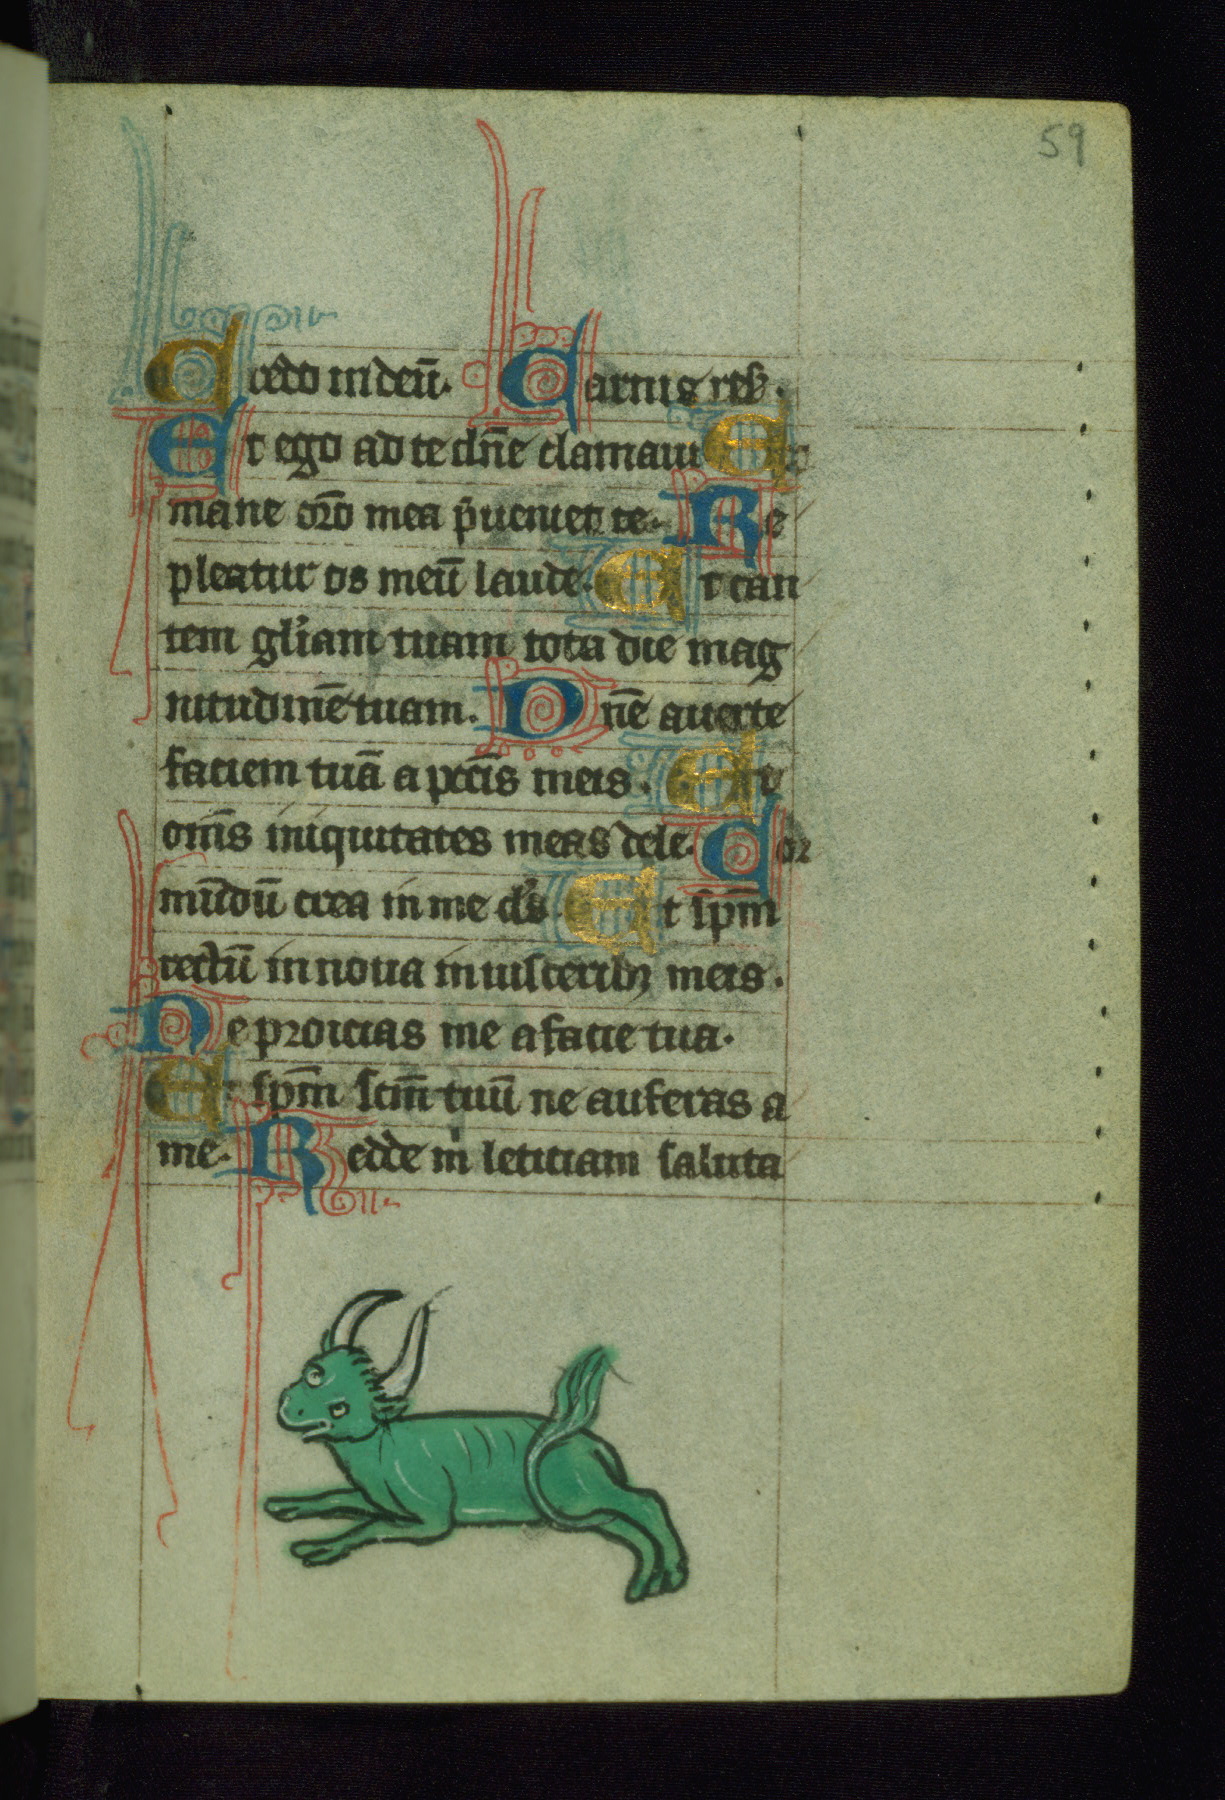 59
Credo in deū. Carnis res̄.
Et ego ad te dn̄e clamaui Et
mane or̄o mea p̄ueniet te. Re
pleatur os meū laude. Et can
tem gl'iam tuam tota die mag
nitudinē tuam. Dn̄e auerte
faciem tuā a pccīs meis. Et
om̄s iniquitates meas dele. Cor
mūdū crea in me ds̄. Et sp̄m
rectū innoua in uisceribꝫ meis.
Ne proicias me a facie tua.
Et sp̄m scm̄ tuū ne auferas a
me. Redde m̍ letitiam saluta